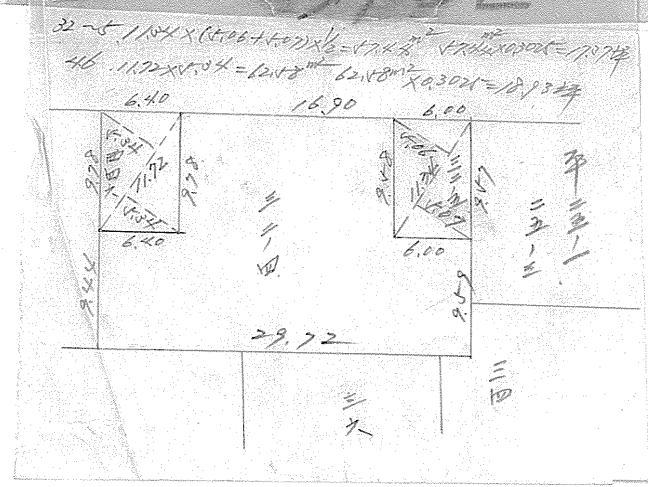 32~5 . 11.34×(5.06+5.07)×1/2=57.44m² 57.44m²×0.3025=17.37坪
46 . 11.72×5.34=62.58m² 62.58m²×0.3025=18.93坪
6.40
16.90
6.00
5.34
11.72
5.34
9.78
9.78
6.40
三二一四
5.06
11.34
5.07
9.58
9.57
6.00
二五一
二五一三
9.44
9.59
29.72
三四
三六